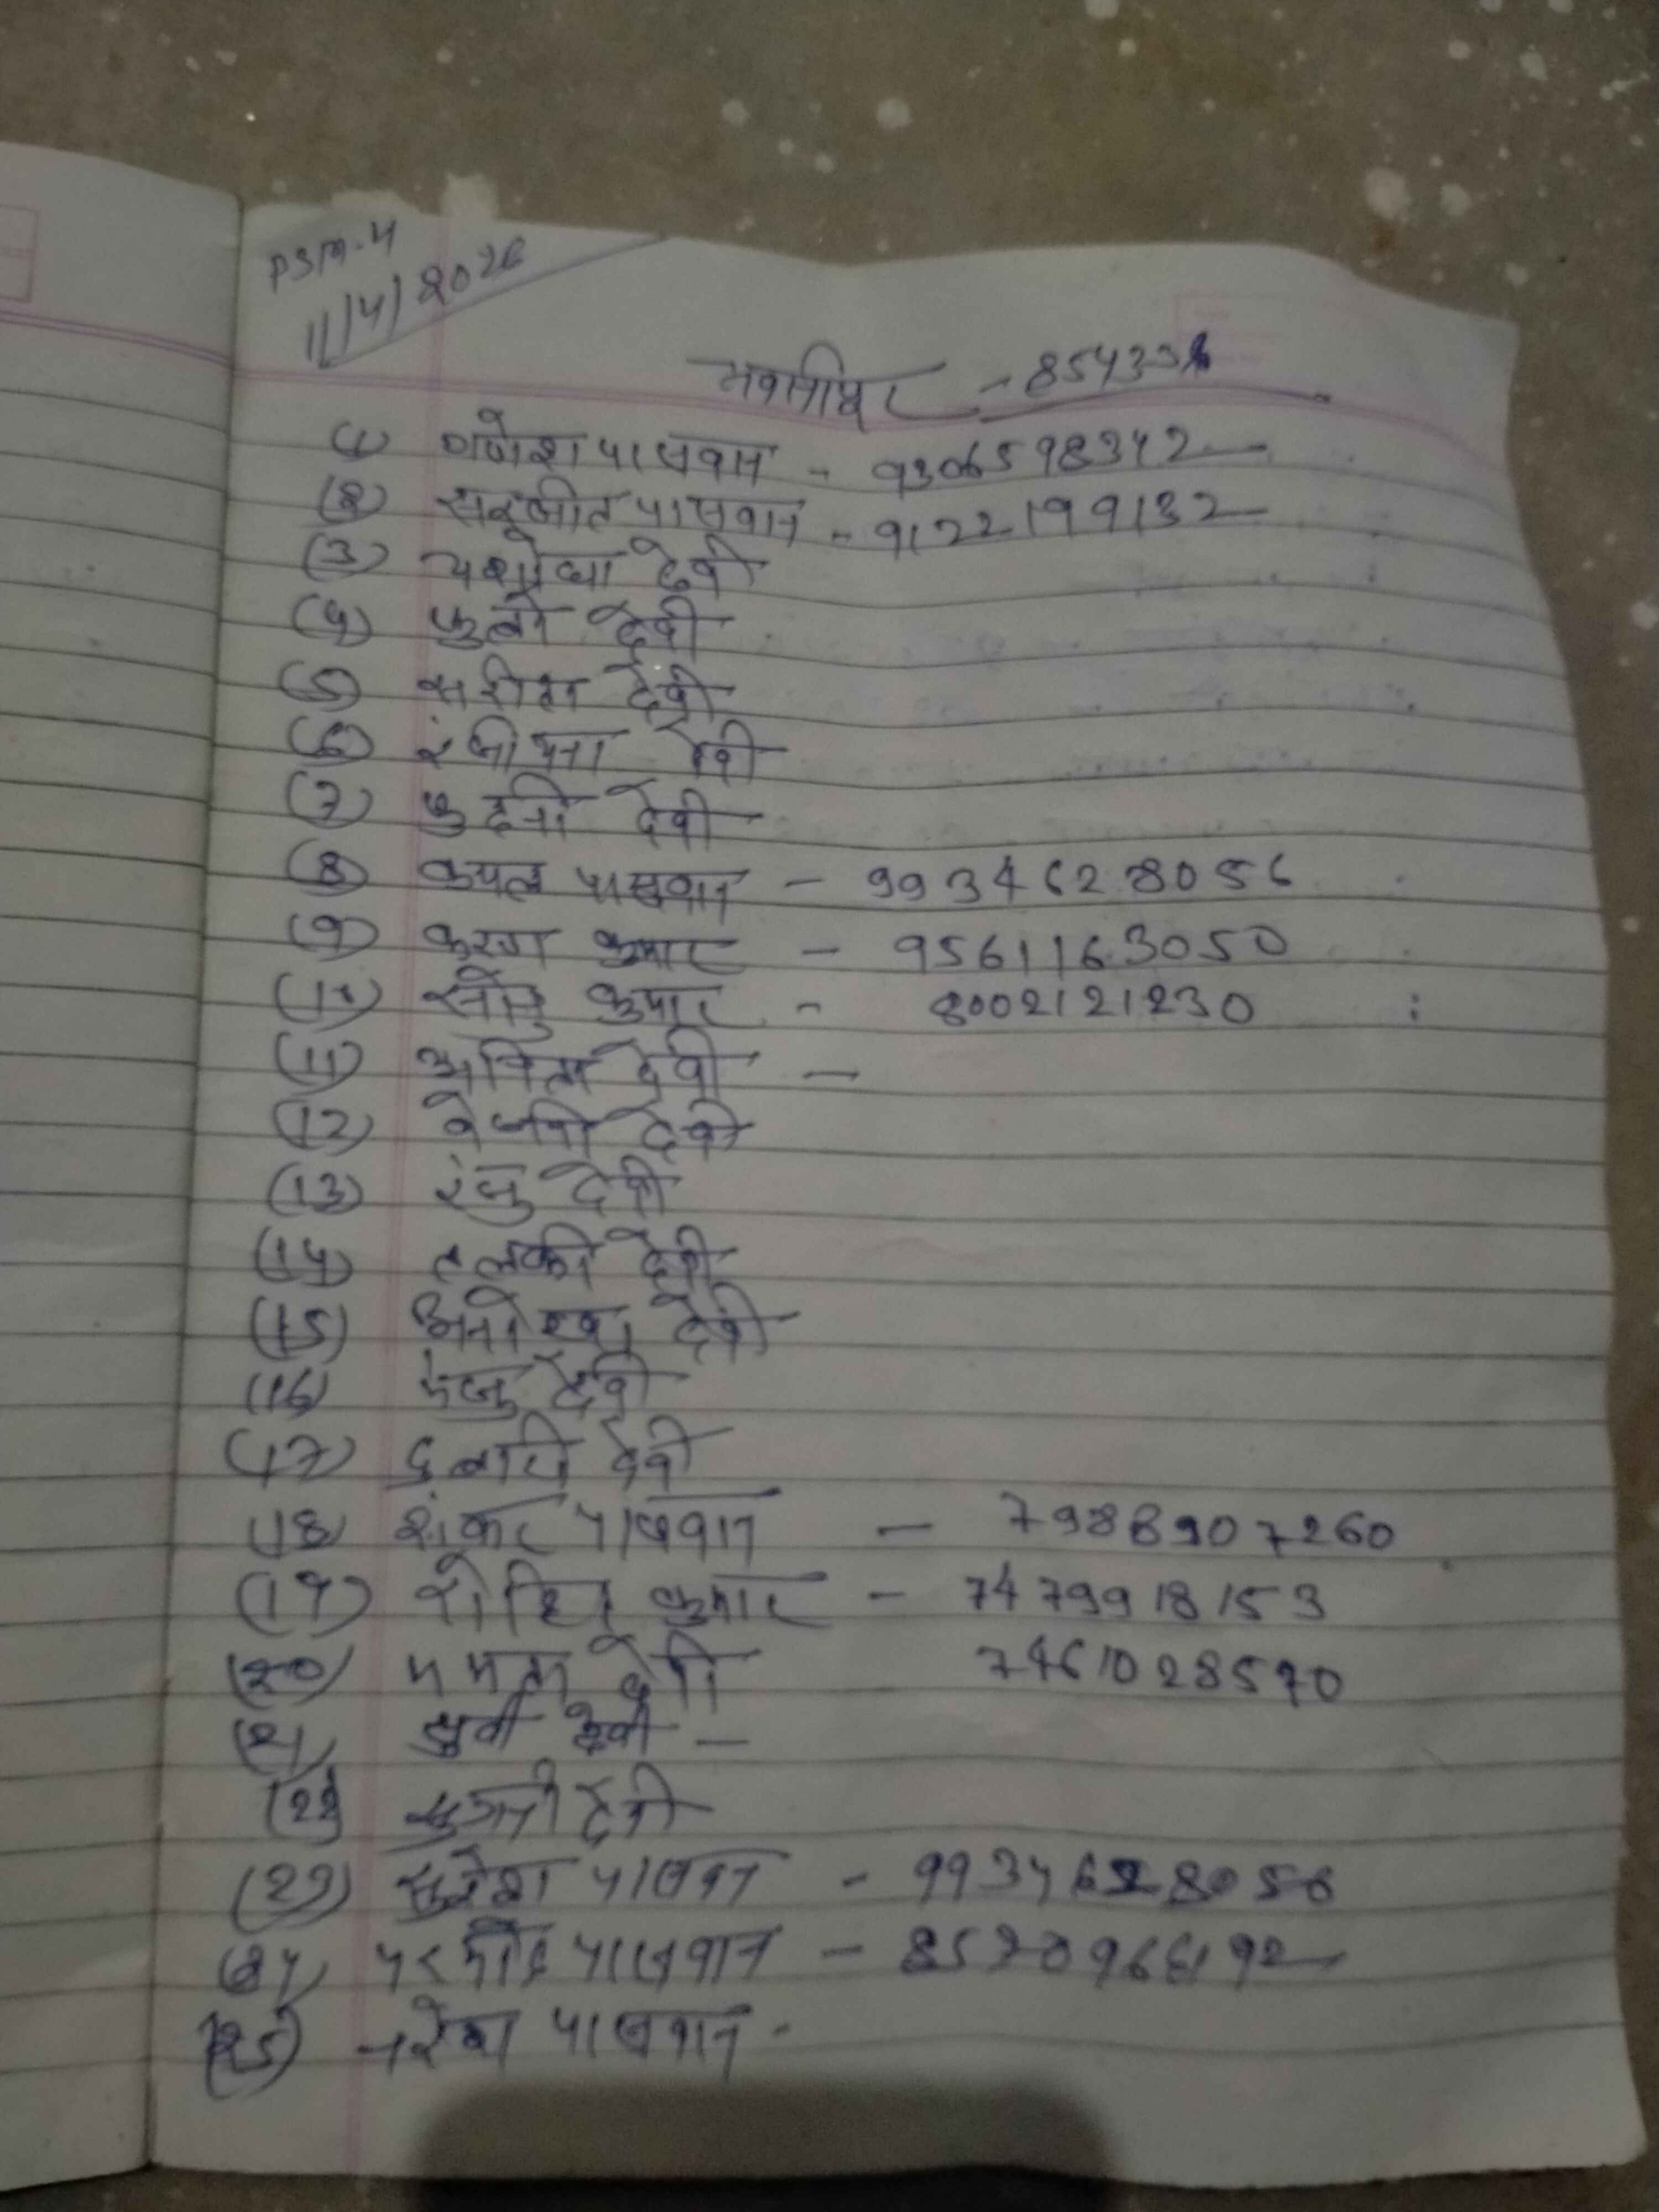 11/4/2026
(1) गणेश पासवान - 9306598342
(2) सरजीत पासवान - 9122199132
(3) यशोधा देवी
(4) फुलो देवी
(5) सरिता देवी
(6) रंजीयना देवी
(7) फुदनी देवी
(8) कपल पासवान - 9934628056
(9) करण कुमार - 9561163050
(10) सोनु कुमार - 8002121230
(11) अनिता देवी -
(12) देवी
(13) रंजु देवी
(14) तलकी देवी
(15) अनोखा देवी
(16) मंजु देवी
(17) दुलारी देवी
(18) शंकर पासवान - 7988907260
(19) रोहित कुमार - 7479918153
(20) ममता देवी 7461028570
(21) देवी -
(22) देवी
(23) सुरेश पासवान - 9934628056
(24) पासवान -
(25) नरेश पासवान -